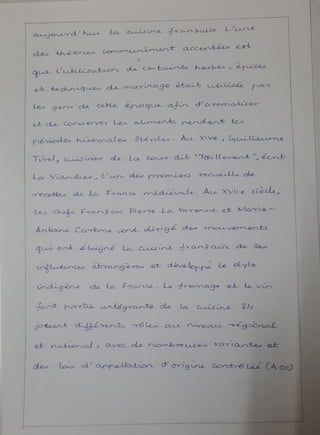 aujourd'hui la cuisine française. L'une
des théories communément acceptées est
que l'utilisation de certaines herbes, épices
et techniques de marinage était utilisée par
les gens de cette époque afin d'aromatiser
et de conserver les aliments pendant les
périodes hivernales stériles. Au XIVe, Guillaume
Tirel, cuisinier de la cour dit "Taillevent", écrit
La Viandier, l'un des premiers recueils de
recettes de la France médiévale. Au XVIIe siècle,
les chefs François Pierre La Varenne et Marie-
Antoine Carême ont dirigé des mouvements
qui ont éloigné la cuisine française de ses
influences étrangères et développé le style
indigène de la France. Le fromage et le vin
font partie intégrante de la cuisine. Ils
jouent différents rôles au niveau régional
et national, avec de nombreuses variantes et
des lois d'appellation d'origine contrôlée (AOC)